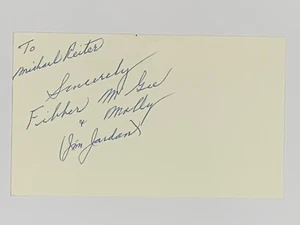 To
Michael Reiter
Sincerely
Fibber McGee
& Molly
(Jim Jordan)